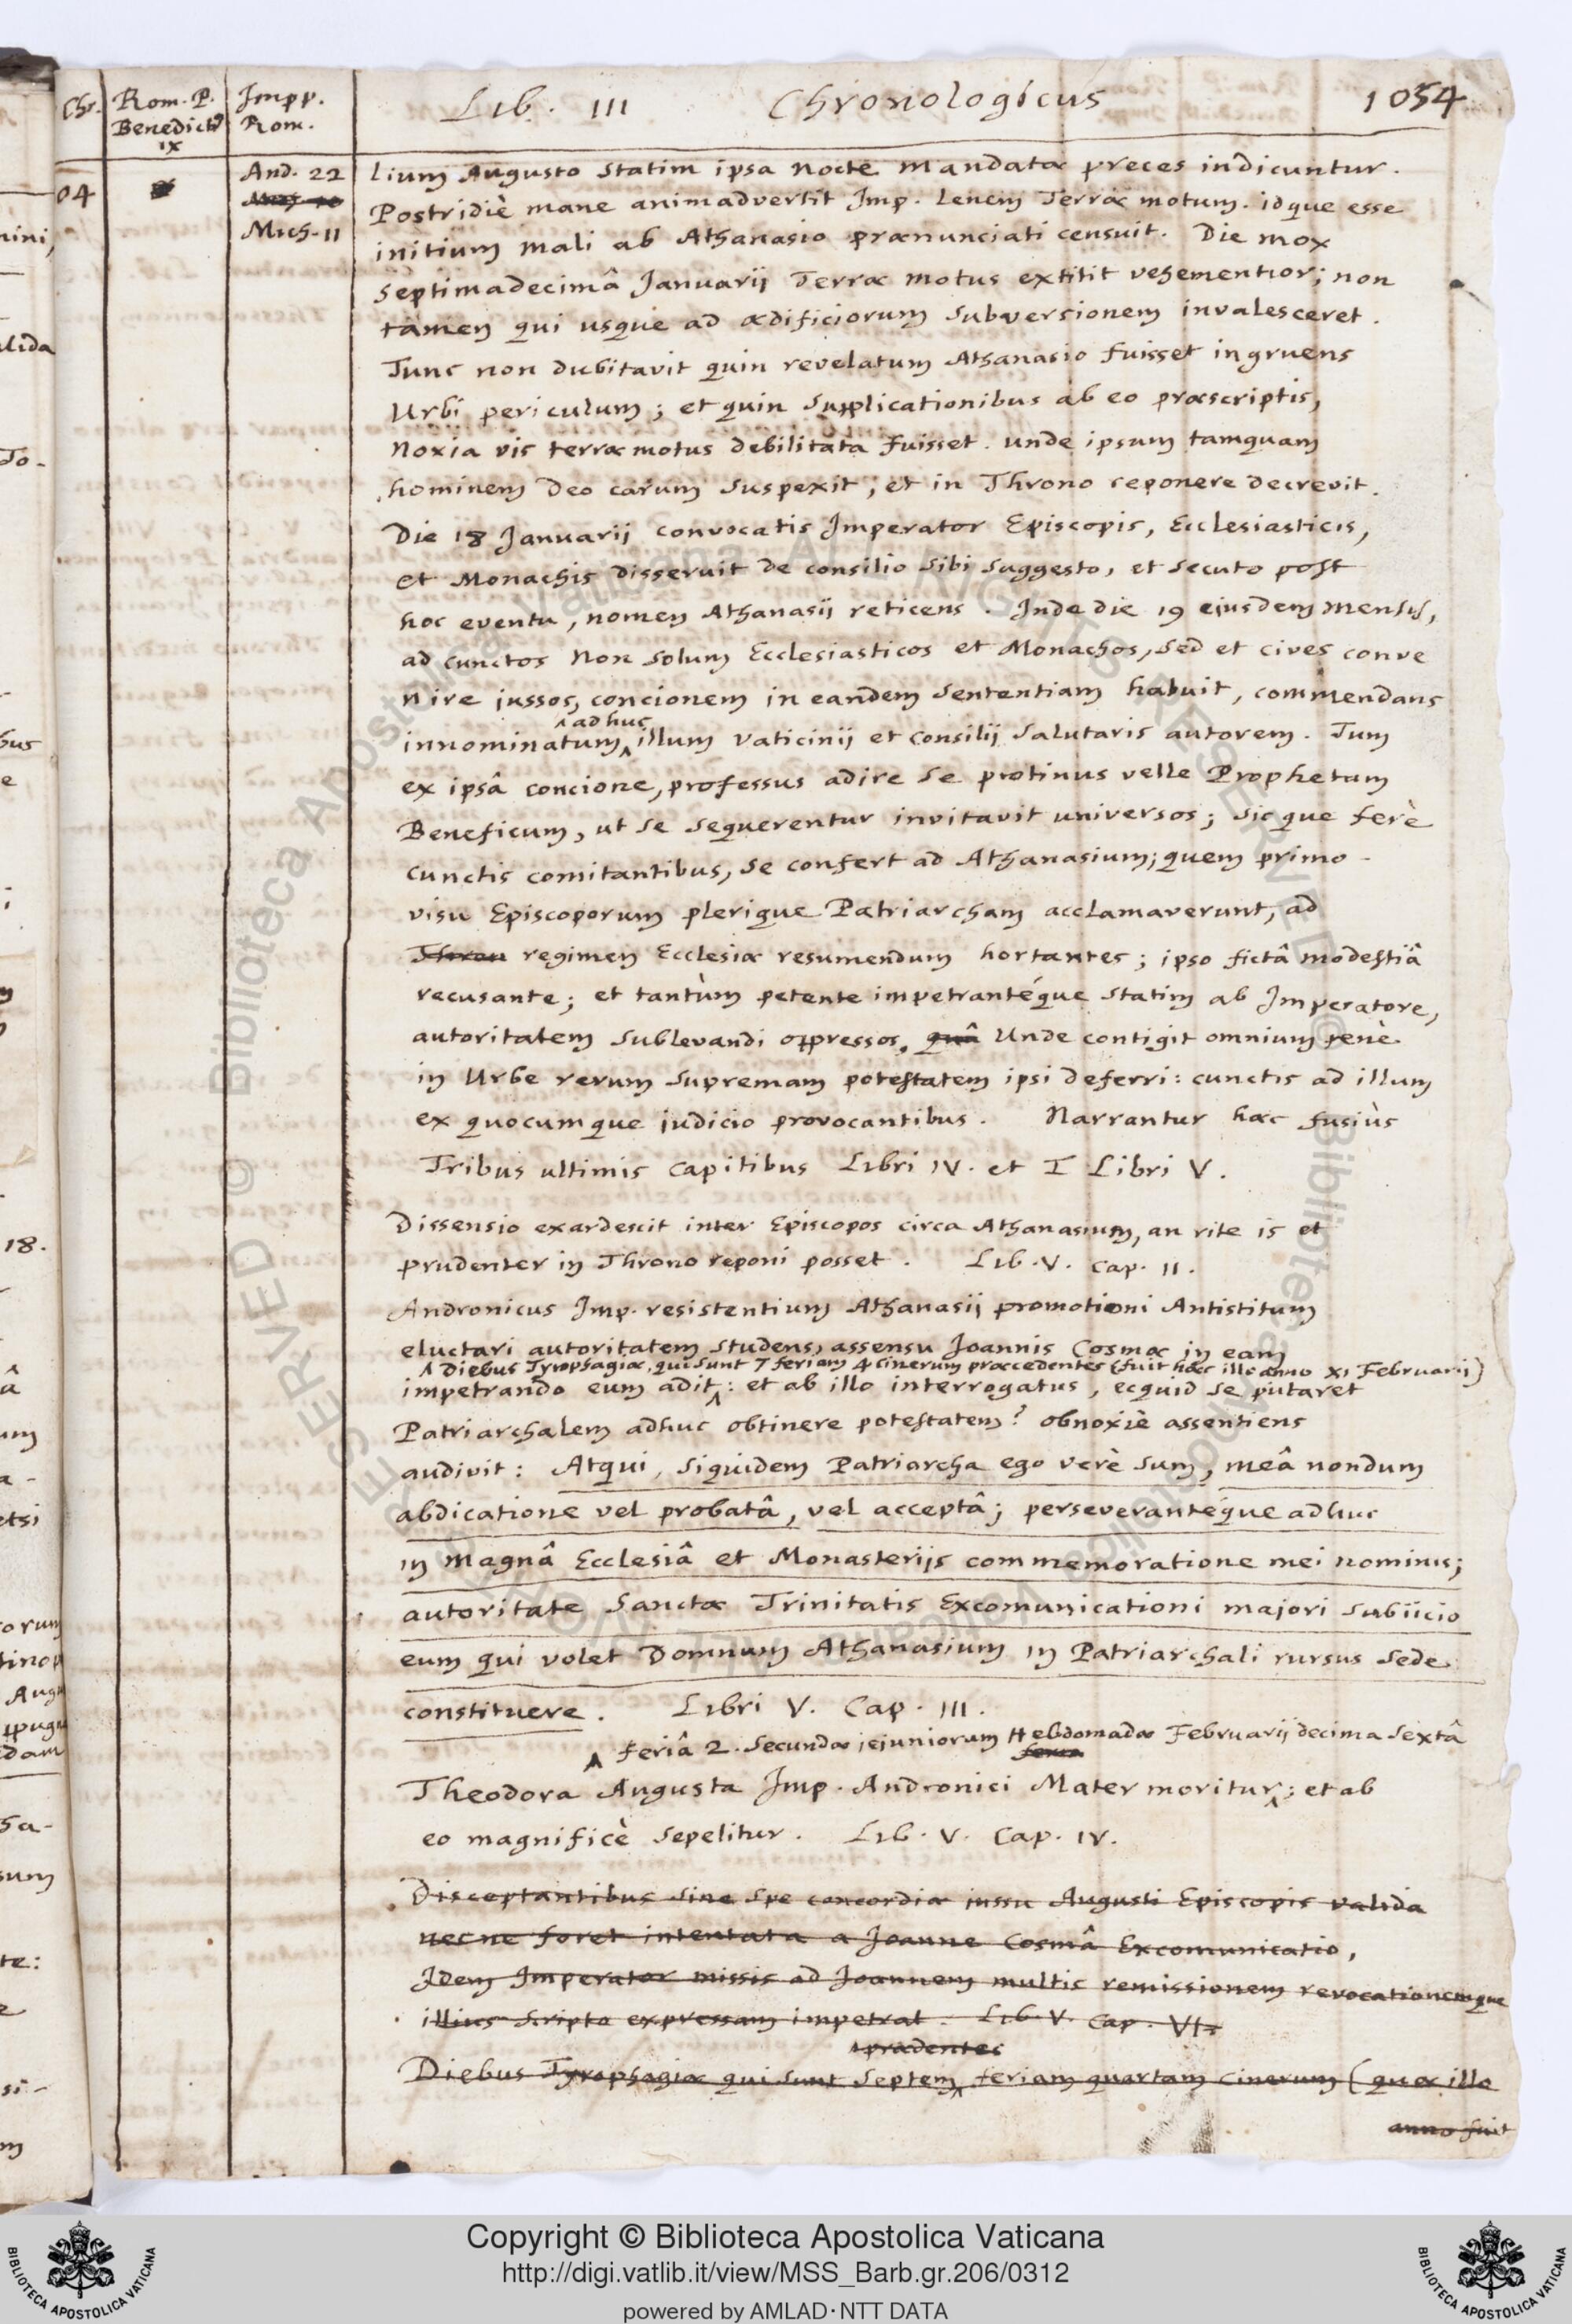 Chr. Rom. P. Benedict9 IX Impp. Rom. Lib. III Chronologicus 1054
04 And. 22
Mich. 11
Lium Augusto statim ipsa nocte mandatæ preces indicuntur.
Postridiè mane animadvertit Imp. lenem Terræ motum. idque esse
initium mali ab Athanasio prænunciati censuit. Die mox
septimadecimâ Januarij Terræ motus extitit vehementior; non
tamen qui usque ad ædificiorum subversionem invalesceret.
Tunc non dubitavit quin revelatum Athanasio fuisset ingruens
Urbi periculum; et quin supplicationibus ab eo præscriptis,
noxia vis terræ motus debilitata fuisset. unde ipsum tamquam
hominem Deo carum suspexit; et in Throno reponere decrevit.
Die 18 Januarij convocatis Imperator Episcopis, Ecclesiasticis,
et Monachis disseruit de consilio sibi suggesto, et secuto post
hoc eventu, nomen Athanasij reticens. Inde die 19 ejusdem mensis,
ad cunctos non solum Ecclesiasticos et Monachos, sed et cives conve
nire jussos, concionem in eandem sententiam habuit, commendans
^ adhuc
innominatum ^ illum vaticinij et consilij salutaris autorem. Tum
ex ipsâ concione, professus adire se protinus velle Prophetam
Beneficum, ut se sequerentur invitavit universos; sicque ferè
cunctis comitantibus, se confert ad Athanasium; quem primo
visu Episcoporum plerique Patriarcham acclamaverunt, ad
Thron regimen Ecclesiæ resumendum hortantes; ipso fictâ modestiâ
recusante; et tantùm petente impetrantéque statim ab Imperatore,
autoritatem sublevandi oppressos. quâ Unde contigit omnium penè
in Urbe rerum supremam potestatem ipsi deferri: cunctis ad illum
ex quocumque judicio provocantibus. Narrantur hæc fusiùs
Tribus ultimis capitibus Libri IV. et I Libri V.
Dissensio exardescit inter Episcopos circa Athanasium, an rite is et
prudenter in Throno reponi posset. Lib. V. cap. II.
Andronicus Imp. resistentium Athanasij promotioni Antistitum
eluctari autoritatem studens, assensu Joannis Cosmæ in eam
^ Diebus Tyrophagiæ, qui sunt 7 feriam 4 cinerum præcedentes (fuit hæc illo anno XI Februarij)
impetrando eum adit ^: et ab illo interrogatus, ecquid se putaret
Patriarchalem adhuc obtinere potestatem? obnoxiè assentiens
audivit: Atqui, siquidem Patriarcha ego verè sum, meâ nondum
abdicatione vel probatâ, vel acceptâ; perseverantéque adhuc
in Magnâ Ecclesiâ et Monasterijs commemoratione mei nominis;
autoritate Sanctæ Trinitatis Excomunicationi majori subijcio
eum qui volet Domnum Athanasium in Patriarchali rursus sede
constituere. Libri V. Cap. III.
^ feriâ 2. secundæ jejuniorum Hebdomadæ Februarij decima sextâ
Theodora Augusta Imp. Andronici Mater moritur ^: et ab
eo magnificè sepelitur. Lib. V. Cap. IV.
Disceptantibus sine spe concordiæ jussu Augusti Episcopis valida
necne foret intentata a Joanne Cosmâ Excomunicatio,
Idem Imperator missis ad Joannem multis remissionem revocationemque
illius scripto expressam impetrat. Lib. V. Cap. VI.
Diebus Tyrophagiæ qui sunt septem ^ feriam quartam cinerum (quæ illo
anno fuit
Copyright © Biblioteca Apostolica Vaticana
http://digi.vatlib.it/view/MSS_Barb.gr.206/0312
powered by AMLAD·NTT DATA
BIBLIOTECA APOSTOLICA VATICANA
BIBLIOTECA APOSTOLICA VATICANA